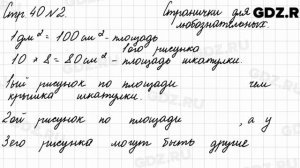 Стр 40 № 2.
Странички для любознательных.
GDZ.R
1 дм² = 100 см² - площадь
1ого рисунка
10 * 8 = 80 см² - площадь шкатулки.
1ый рисунок по площади чем
крышка шкатулки.
2ой рисунок по площади , а у
3его рисунка могут быть другие